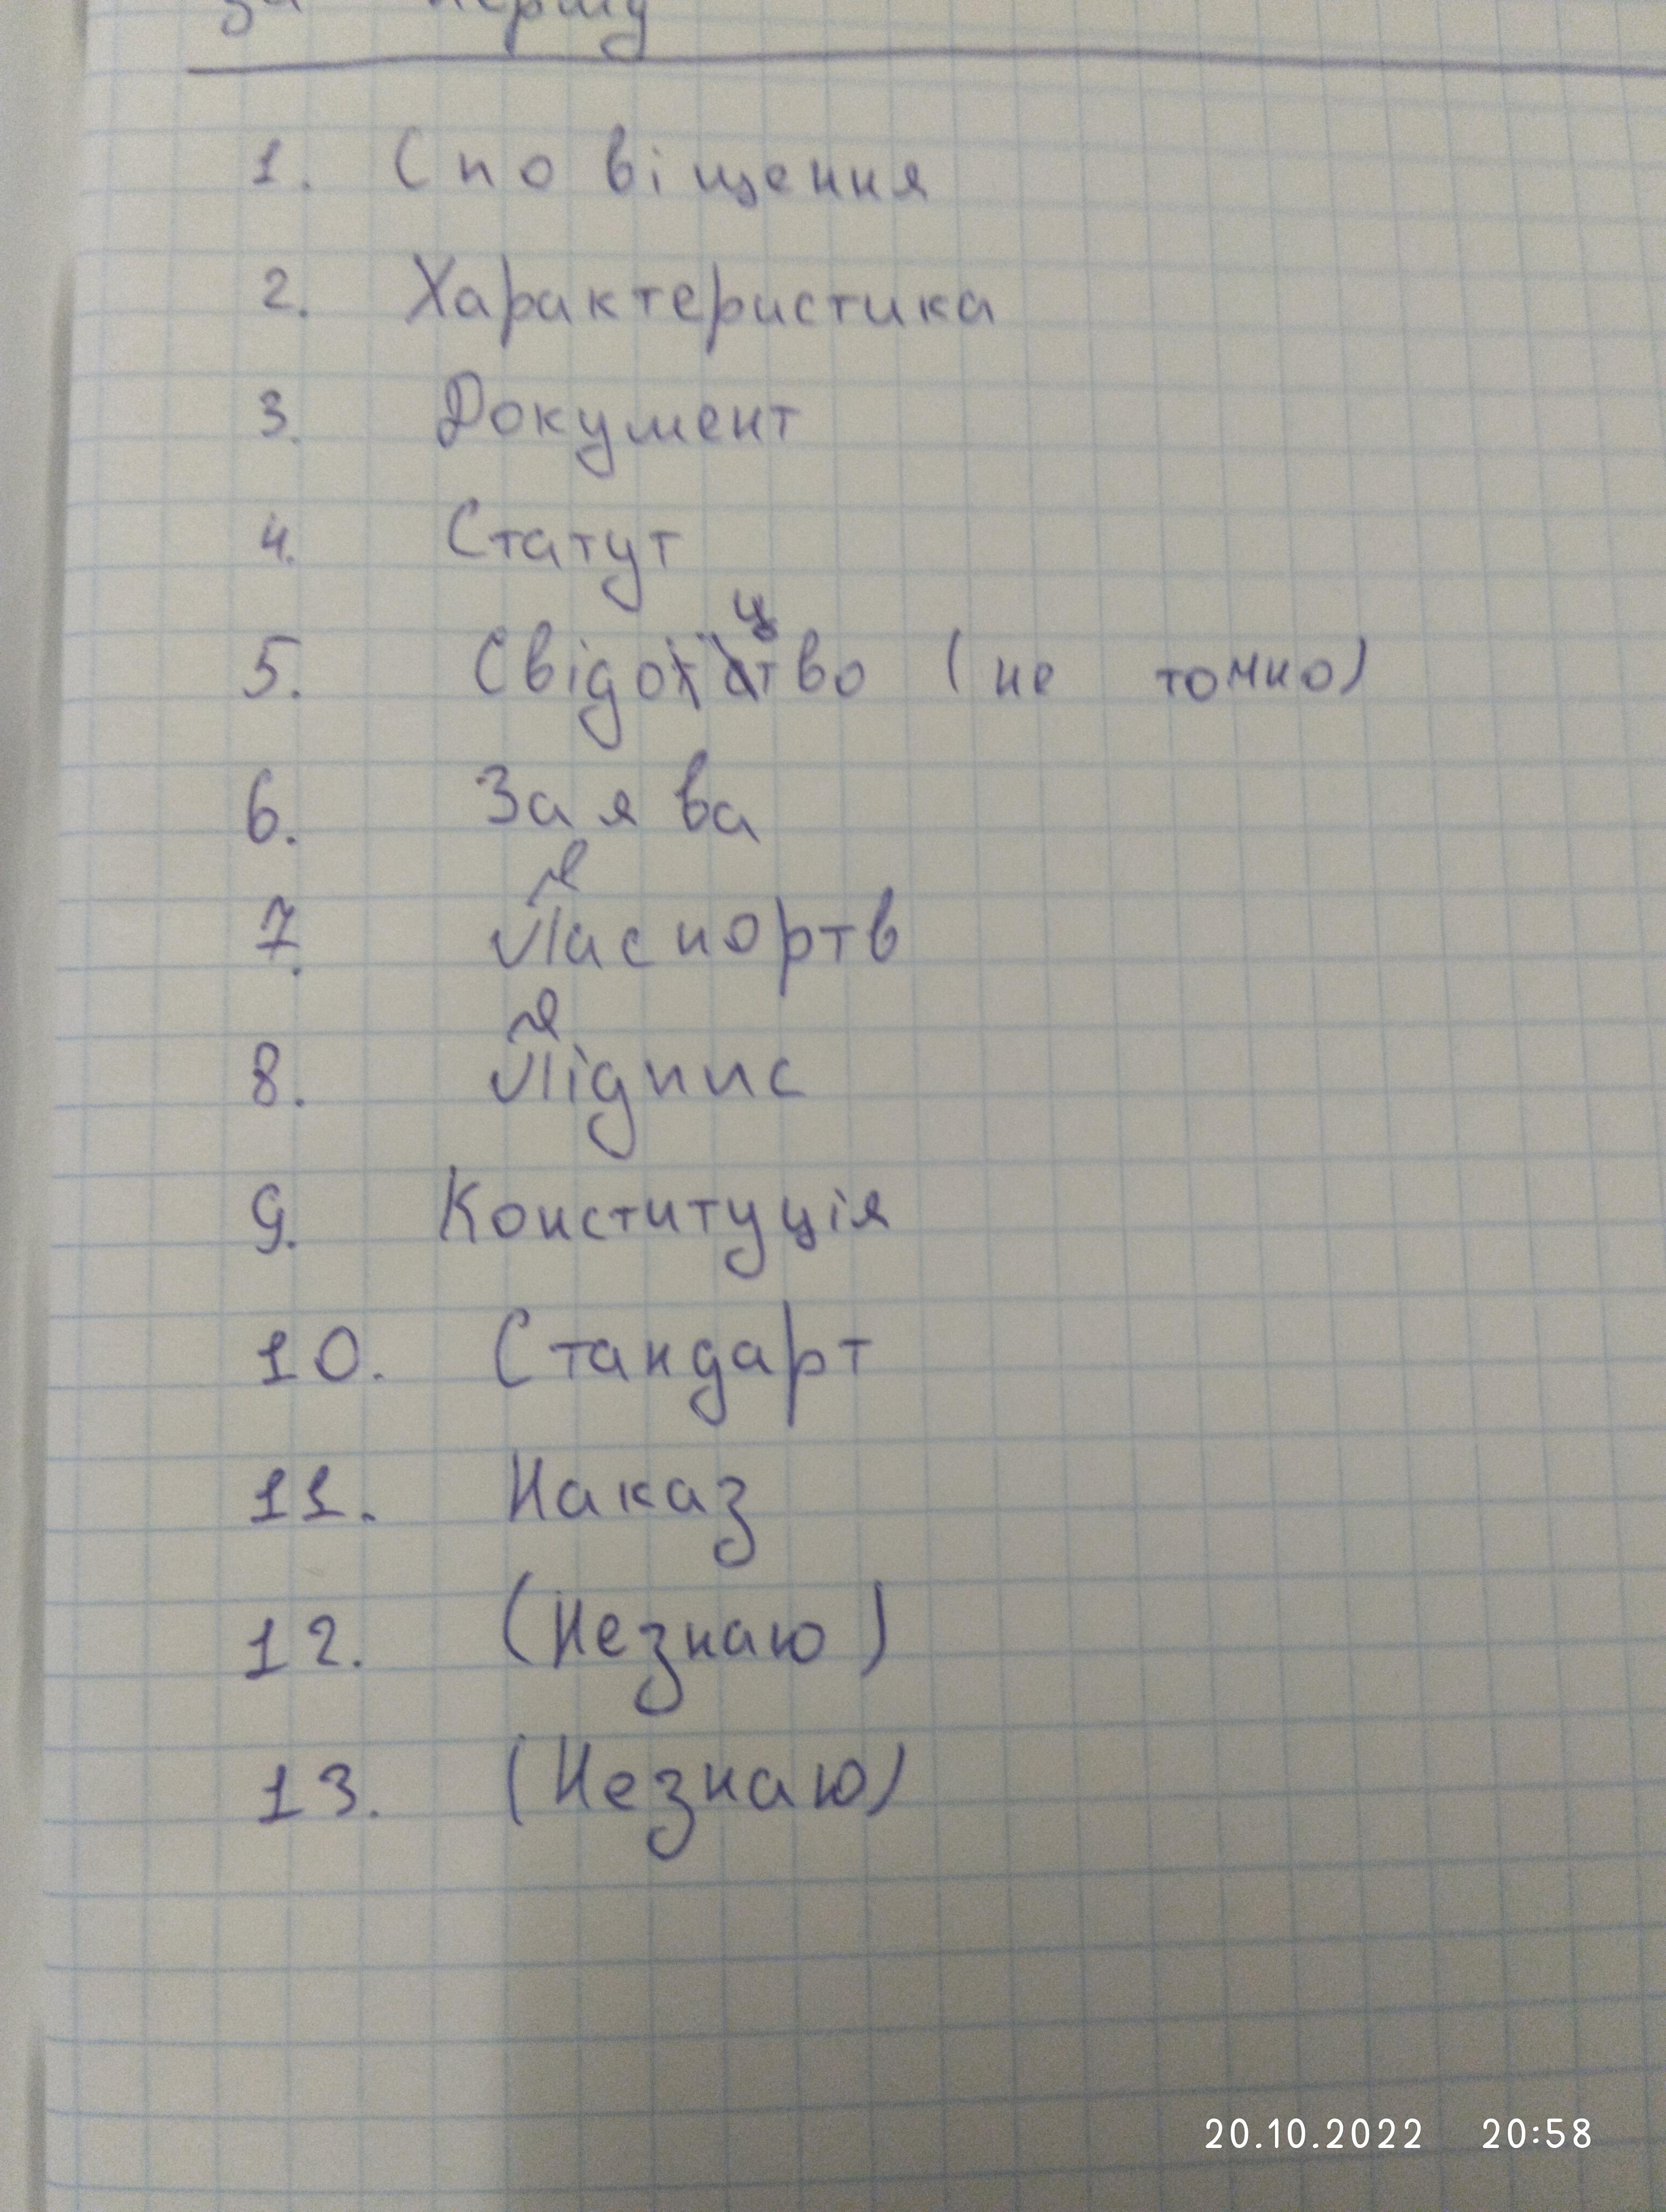 за першу
1. Сповіщення
2. Характеристика
3. Документ
4. Статут
5. Свідоцтво (не точно)
6. Заява
7. Паспортв
8. Підпис
9. Конституція
10. Стандарт
11. Наказ
12. (Незнаю)
13. (Незнаю)
20.10.2022 20:58